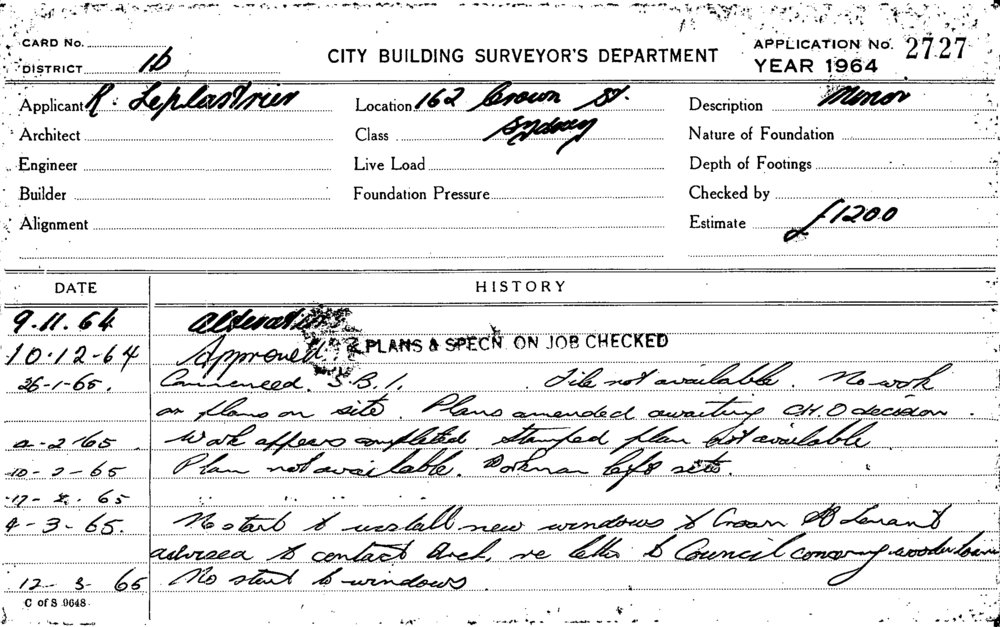 CARD No.
DISTRICT 1b
CITY BUILDING SURVEYOR'S DEPARTMENT
APPLICATION No. 2727
YEAR 1964
Applicant R. Leplastrier
Location 162 Crown St.
Description Minor
Architect
Class Sydney
Nature of Foundation
Engineer
Live Load
Depth of Footings
Builder
Foundation Pressure
Checked by
Alignment
Estimate £1200
DATE HISTORY
9.11.64 Alterations
10.12-64 Approved PLANS & SPECN. ON JOB CHECKED
26-1-65. Commenced. S.B.1. File not available. No work
on plans on site. Plans amended awaiting C.H.O decision.
4-2-65 Work appears completed. Stamped plan not available
10-2-65 Plan not available. Workman left site.
17-2-65 .. .. ..
4-3-65. No start to install new windows to Crown St Tenant
advised to contact Arch. re letter to Council concerning wooden
12-3-65 No start to windows
C of S 9648